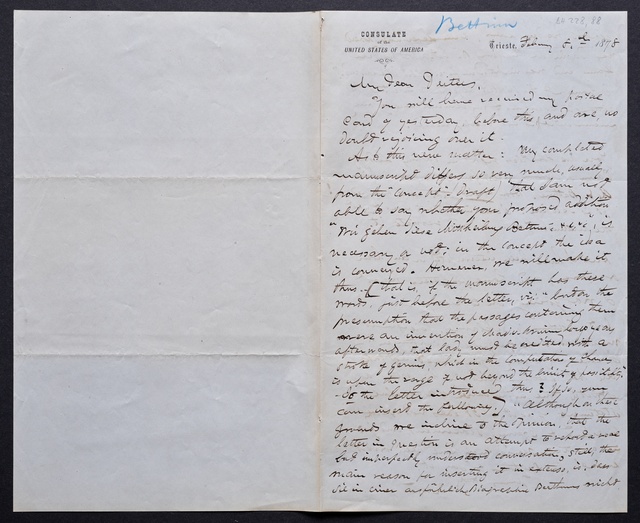 Bettina
CONSULATE
of the
UNITED STATES OF AMERICA
Trieste, February 5th 1878
My dear Deiters,
You will have received my Postal
Card of yesterday, before this, and are, no
doubt rejoicing over it.
As to this new matter: My completed
manuscript differs so very much, usually
from the "Concept" (draft) that I am not
able to say whether your proposed addition
"Wir geben diese Mittheilung Bettina's &c &c", is
necessary or not; in the concept the idea
is conveyed. However, we will make it
thus: (that is, if the manuscript has these
words, just before the letter, viz: "but on the
presumption that the passages containing them
were an invention of Madame Arnim
afterwards, that lady must be credited with a
stroke of genius, which in the computation of chances
is upon the verge if not beyond the limits of possibility"
Is the letter introduced thus? If so, you
can insert the following:) "Although on these
grounds we incline to the opinion, that the
letter in question is an attempt to record a real
but imperfectly understood conversation, still, the
main reason for inserting it in extenso, is, dass
sie in einer ausführlich Biographie Beethovens nicht